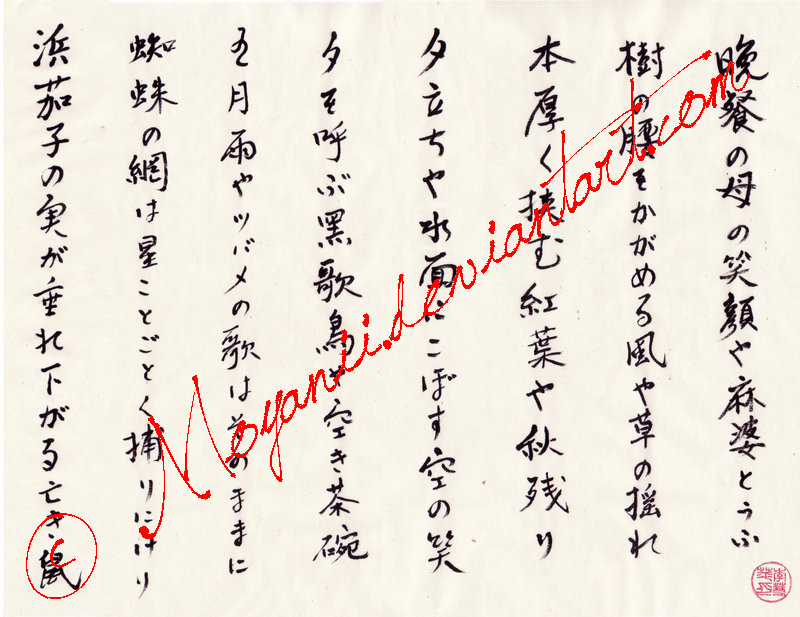 晩餐の母の笑顔や麻婆とうふ
樹の腰をかがめる風や草の揺れ
本厚く挟む紅葉や秋残り
夕立ちや水面にこぼす空の笑
夕を呼ぶ黒歌鳥や空き茶碗
五月雨やツバメの歌はそのままに
蜘蛛の網は星ことごとく捕りにけり
浜茄子の実が垂れ下がる亡き鼠
Moyanii.deviantart.com